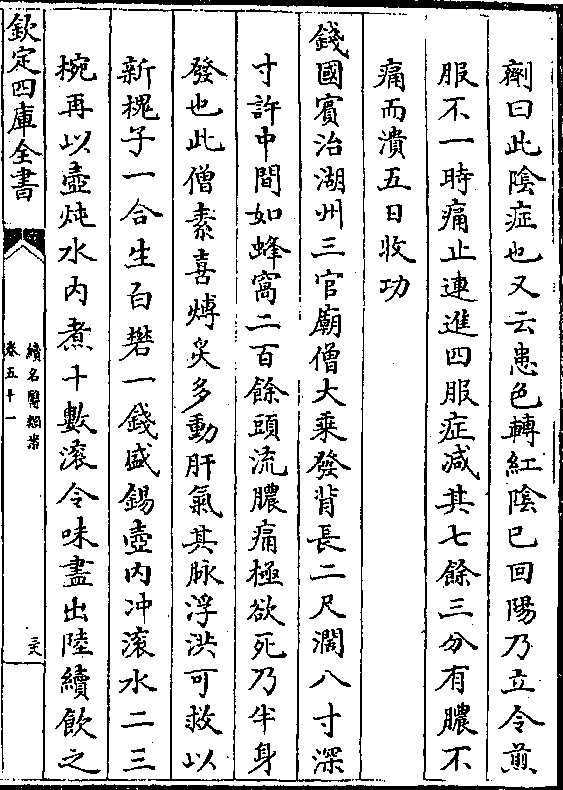 劑曰此陰症也又云患色轉紅陰已回陽乃立令煎
服不一時痛止連進四服症減其七餘三分有膿不
痛而潰五日收功
錢國賓治湖州三官廟僧大乘發背長二尺濶八寸深
寸許中間如蜂窩二百餘頭流膿痛極欲死乃半身
發也此僧素喜煿炙多動肝氣其脉浮洪可救以
新槐子一合生白礬一錢盛錫壺内冲滚水二三
椀再以壺炖水内煮十數滚令味盡出陸續飲之
欽定四庫全書
續名醫類案
卷五十一